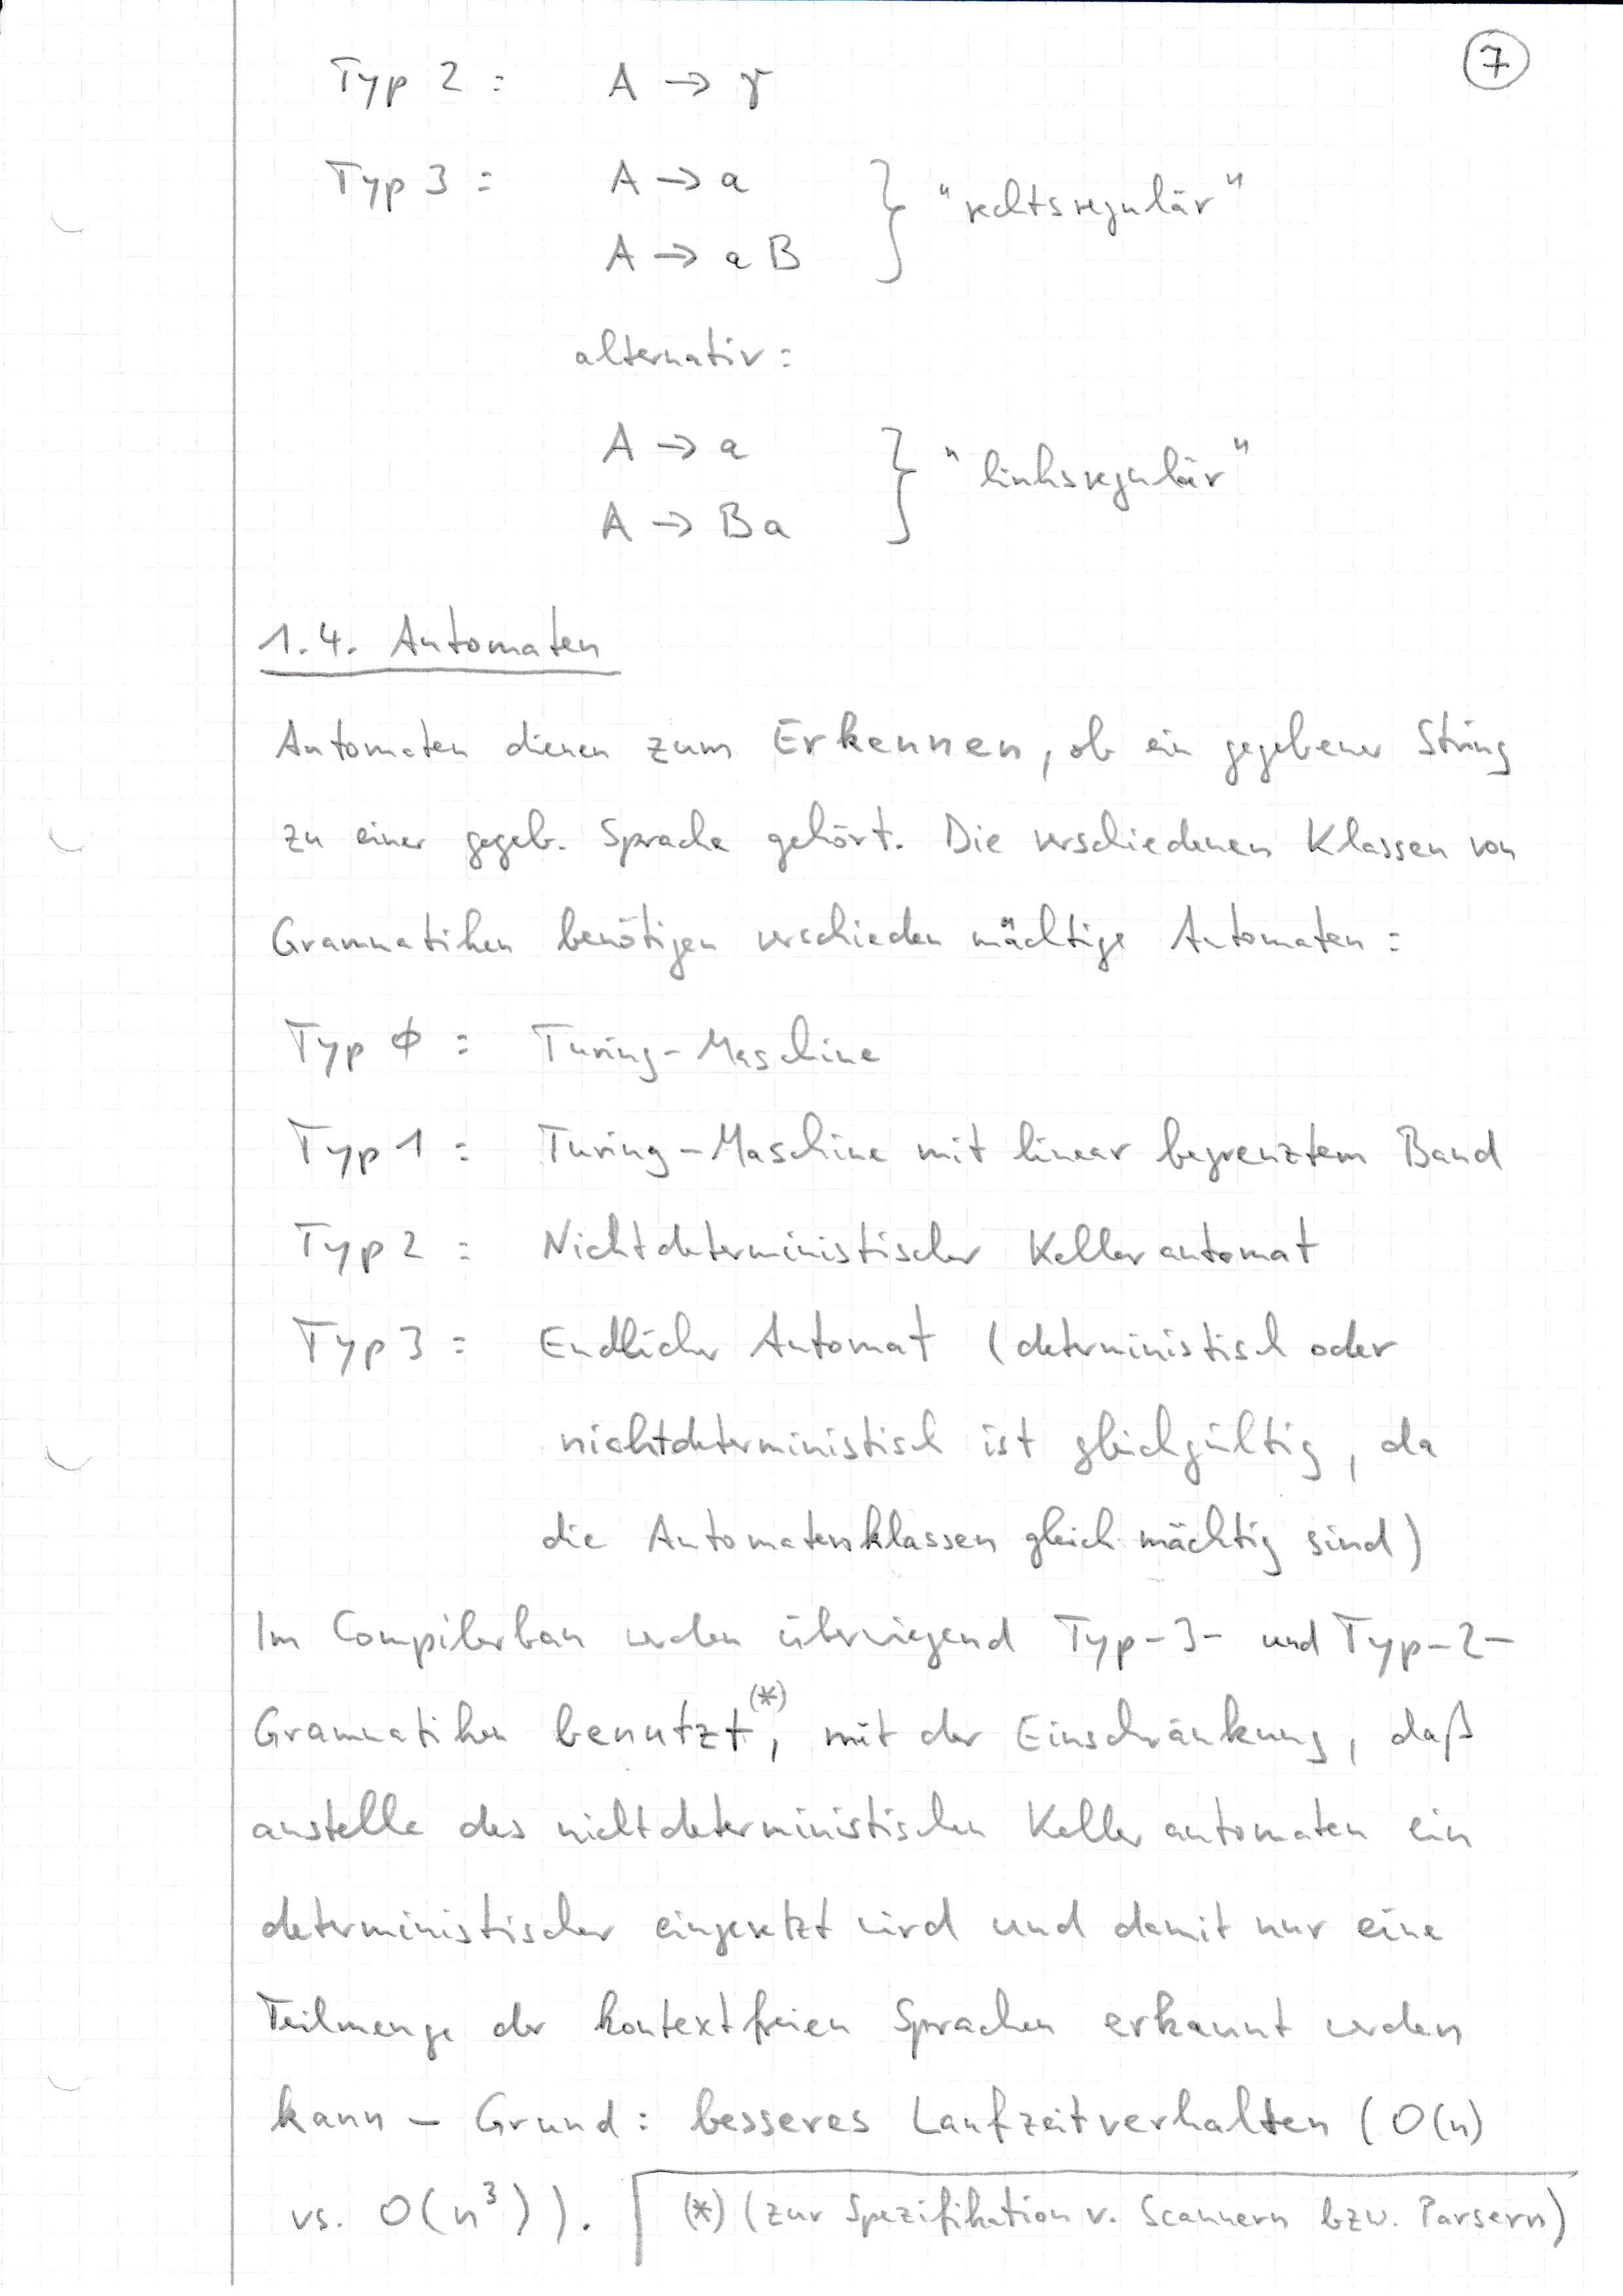 7
Typ 2: A → γ
Typ 3: A → a
A → a B
"rechtsregulär"
alternativ:
A → a
A → B a
"linksregulär"
1.4. Automaten
Automaten dienen zum Erkennen, ob ein gegebener String
zu einer gegeb. Sprache gehört. Die verschiedenen Klassen von
Grammatiken benötigen verschieden mächtige Automaten:
Typ 0: Turing-Maschine
Typ 1: Turing-Maschine mit linear begrenztem Band
Typ 2: Nichtdeterministischer Kellerautomat
Typ 3: Endlicher Automat (deterministisch oder
nichtdeterministisch ist gleichgültig, da
die Automatenklassen gleich mächtig sind)
Im Compilerbau werden überwiegend Typ-3- und Typ-2-
Grammatiken benutzt(*), mit der Einschränkung, daß
anstelle des nichtdeterministischen Kellerautomaten ein
deterministischer eingesetzt wird und damit nur eine
Teilmenge der kontextfreien Sprachen erkannt werden
kann – Grund: besseres Laufzeitverhalten (O(n)
vs. O(n³)). (*) (zur Spezifikation v. Scannern bzw. Parsern)